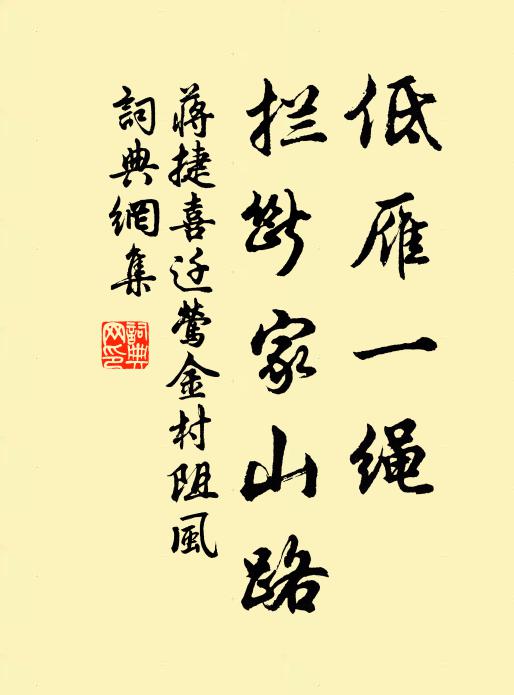 低雁一绳
拦斷家山路
蒋捷喜迁莺金村阻風
詞典網集
詞典网印